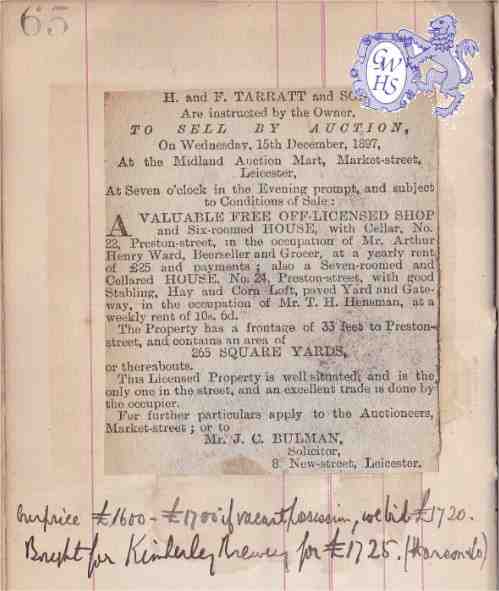 65
GWHS
H. and F. TARRATT and SO
Are instructed by the Owner,
TO SELL BY AUCTION,
On Wednesday, 15th December, 1897,
At the Midland Auction Mart, Market-street,
Leicester,
At Seven o'clock in the Evening prompt, and subject
to Conditions of Sale:
A VALUABLE FREE OFF-LICENSED SHOP
and Six-roomed HOUSE, with Cellar, No.
22, Preston-street, in the occupation of Mr. Arthur
Henry Ward, Beerseller and Grocer, at a yearly rent
of £25 and payments; also a Seven-roomed and
Cellared HOUSE, No. 24, Preston-street, with good
Stabling, Hay and Corn Loft, paved Yard and Gate-
way, in the occupation of Mr. T. H. Hensman, at a
weekly rent of 10s. 6d.
The Property has a frontage of 33 feet to Preston-
street, and contains an area of
265 SQUARE YARDS,
or thereabouts.
This Licensed Property is well situated, and is the
only one in the street, and an excellent trade is done by
the occupier.
For further particulars apply to the Auctioneers,
Market-street; or to
Mr. J. C. BULMAN,
Solicitor,
8 New-street, Leicester.
Our price £1600 - £1700 if vacant possession, we bid £1720.
Bought for Kimberley Brewery for £1725.